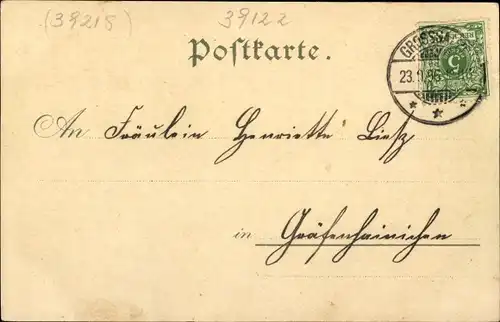 (39218) 39122
Postkarte.
GROSS
23.11.96
5
An Fräulein Henriette Lietz
in Gräfenhainichen